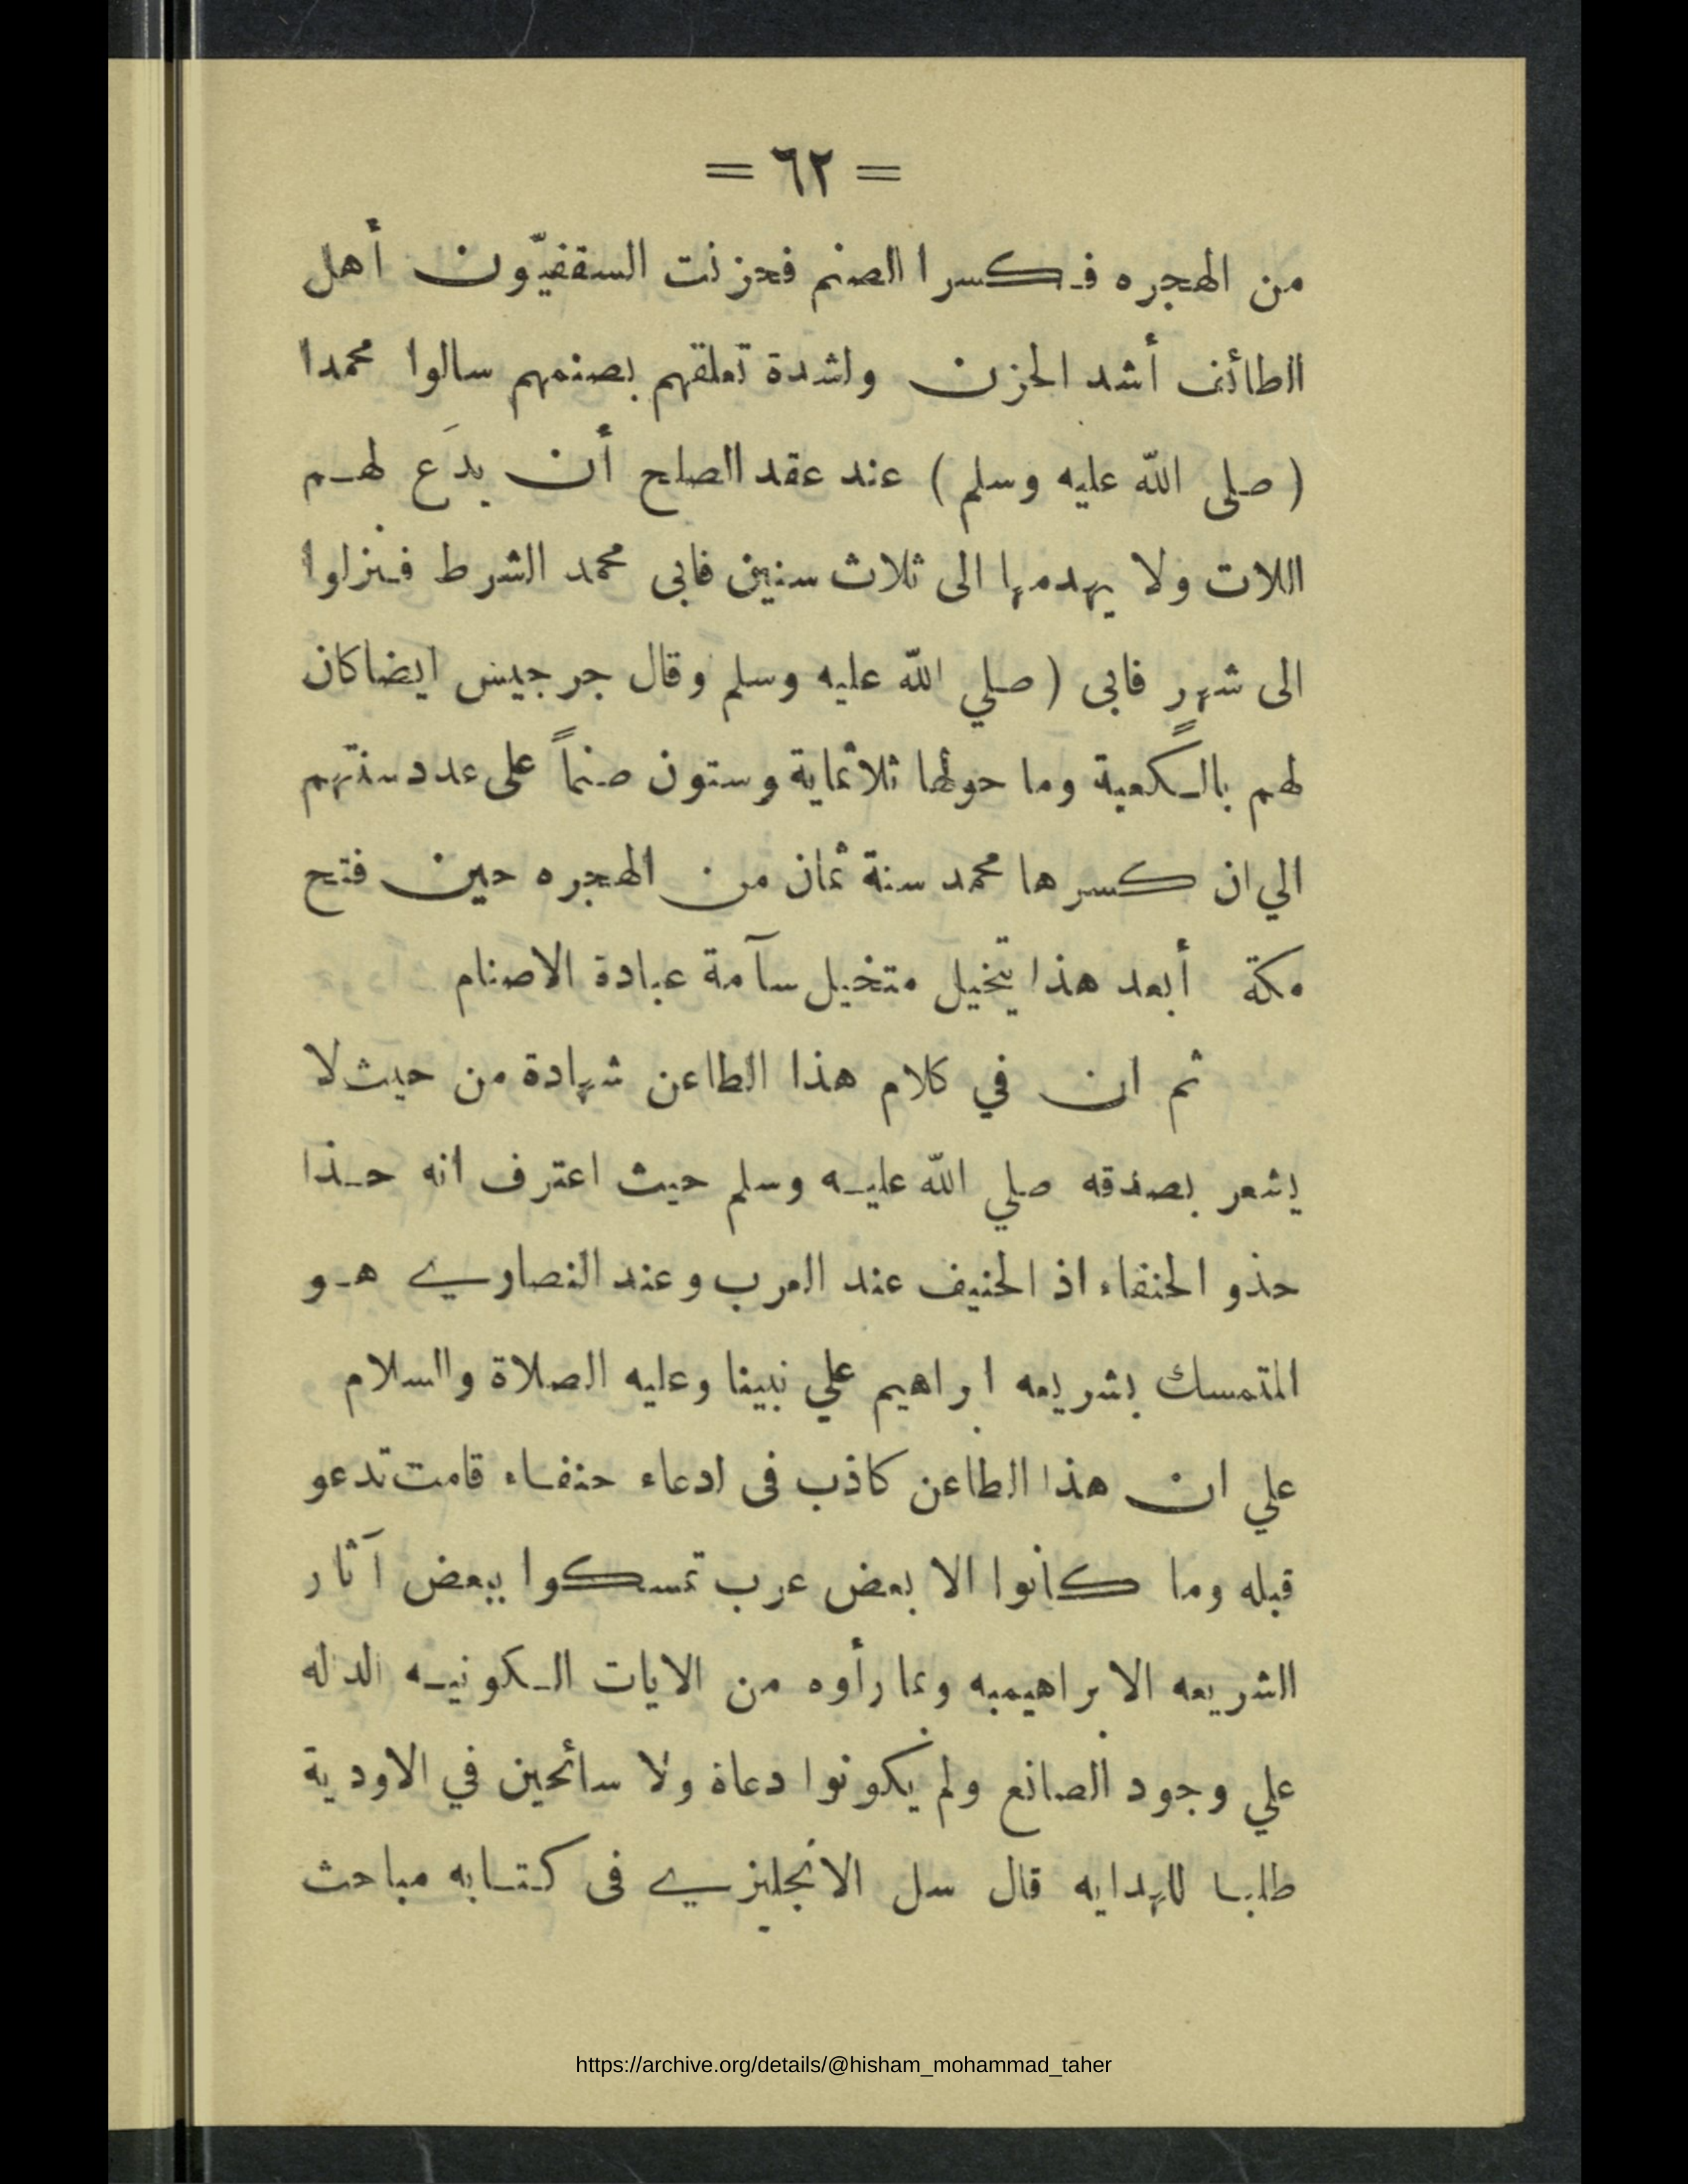 = ٦٢ =
من الهجره فكسرا الصنم فحزنت السقفيّون أهل
الطائف أشد الحزن ولشدة تعلقهم بصنمهم سالوا محمدا
( صلى الله عليه وسلم ) عند عقد الصلح أن يدَع لهم
اللات ولا يهدمها الى ثلاث سنين فابى محمد الشرط فنزلوا
الى شهرٍ فابى ( صلي الله عليه وسلم وقال جرجيس ايضا كان
لهم بالكعبة وما حولها ثلاثماية وستون صنماً على عدد سنتهم
الي ان كسرها محمد سنة ثمان من الهجره حين فتح
مكة أبعد هذا يتخيل متخيل سآمة عبادة الاصنام
ثم ان في كلام هذا الطاعن شهادة من حيث لا
يشعر بصدقه صلي الله عليه وسلم حيث اعترف انه حذا
حذو الحنفاء اذ الحنيف عند العرب وعند النصارى هو
المتمسك بشريعه ابراهيم علي نبينا وعليه الصلاة والسلام
علي ان هذا الطاعن كاذب فى ادعاء حنفاء قامت تدعو
قبله وما كانوا الا بعض عرب تمسكوا ببعض آثار
الشريعه الابراهيميه وبما رأوه من الايات الكونيه الداله
علي وجود الصانع ولم يكونوا دعاة ولا سائحين في الاودية
طلبا للهدايه قال سل الانجليزي فى كتابه مباحث
https://archive.org/details/@hisham_mohammad_taher